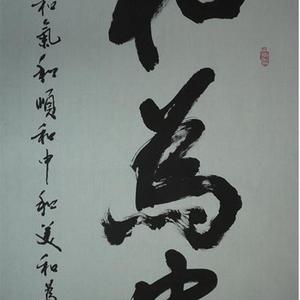 和為
和氣和順和中和美和為